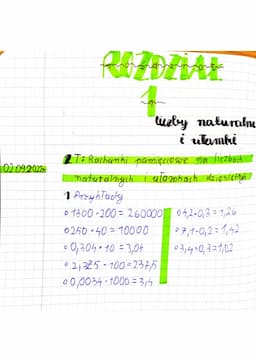 ROZDZIAŁ
1
liczby naturalne
i ułamki
02.09.2025
2 T: Rachunki pamięciowe na liczbach
naturalnych i ułamkach dziesiętnych
1 Przykłady
1300·200 = 260000
250·40 = 10000
0,304·10 = 3,04
2,375·100 = 237,5
0,0034·1000 = 3,4
4,2·0,3 = 1,26
7,1·0,2 = 1,42
3,4·0,3 = 1,02